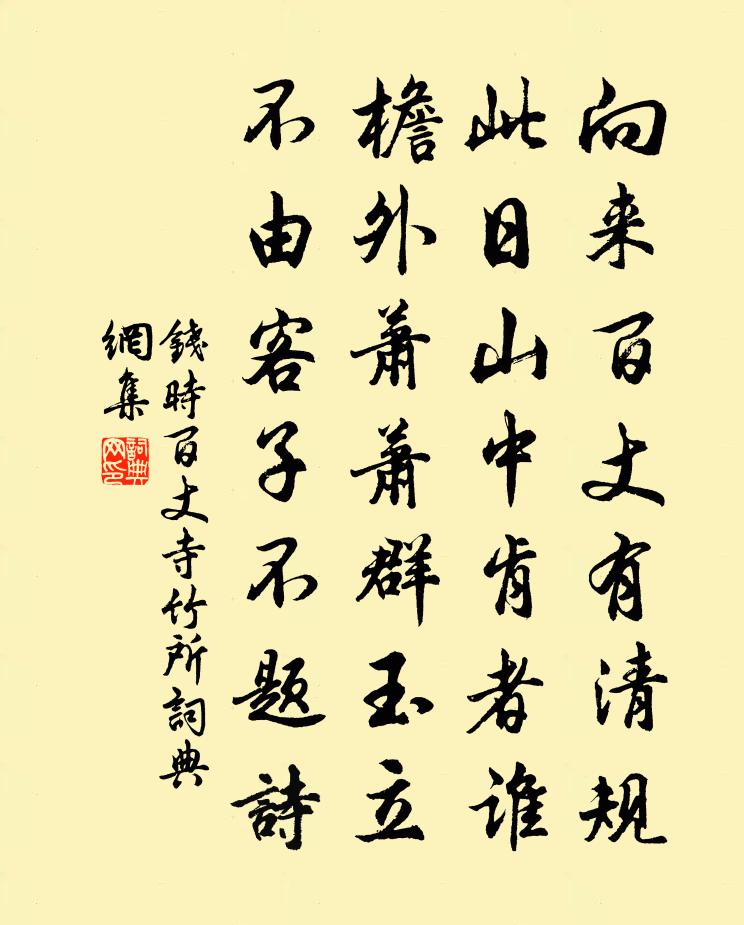 向来百丈有清规
此日山中肯者谁
檐外萧萧群玉立
不由客子不题詩
錢時百丈寺竹所詞典
網集
詞典
网印